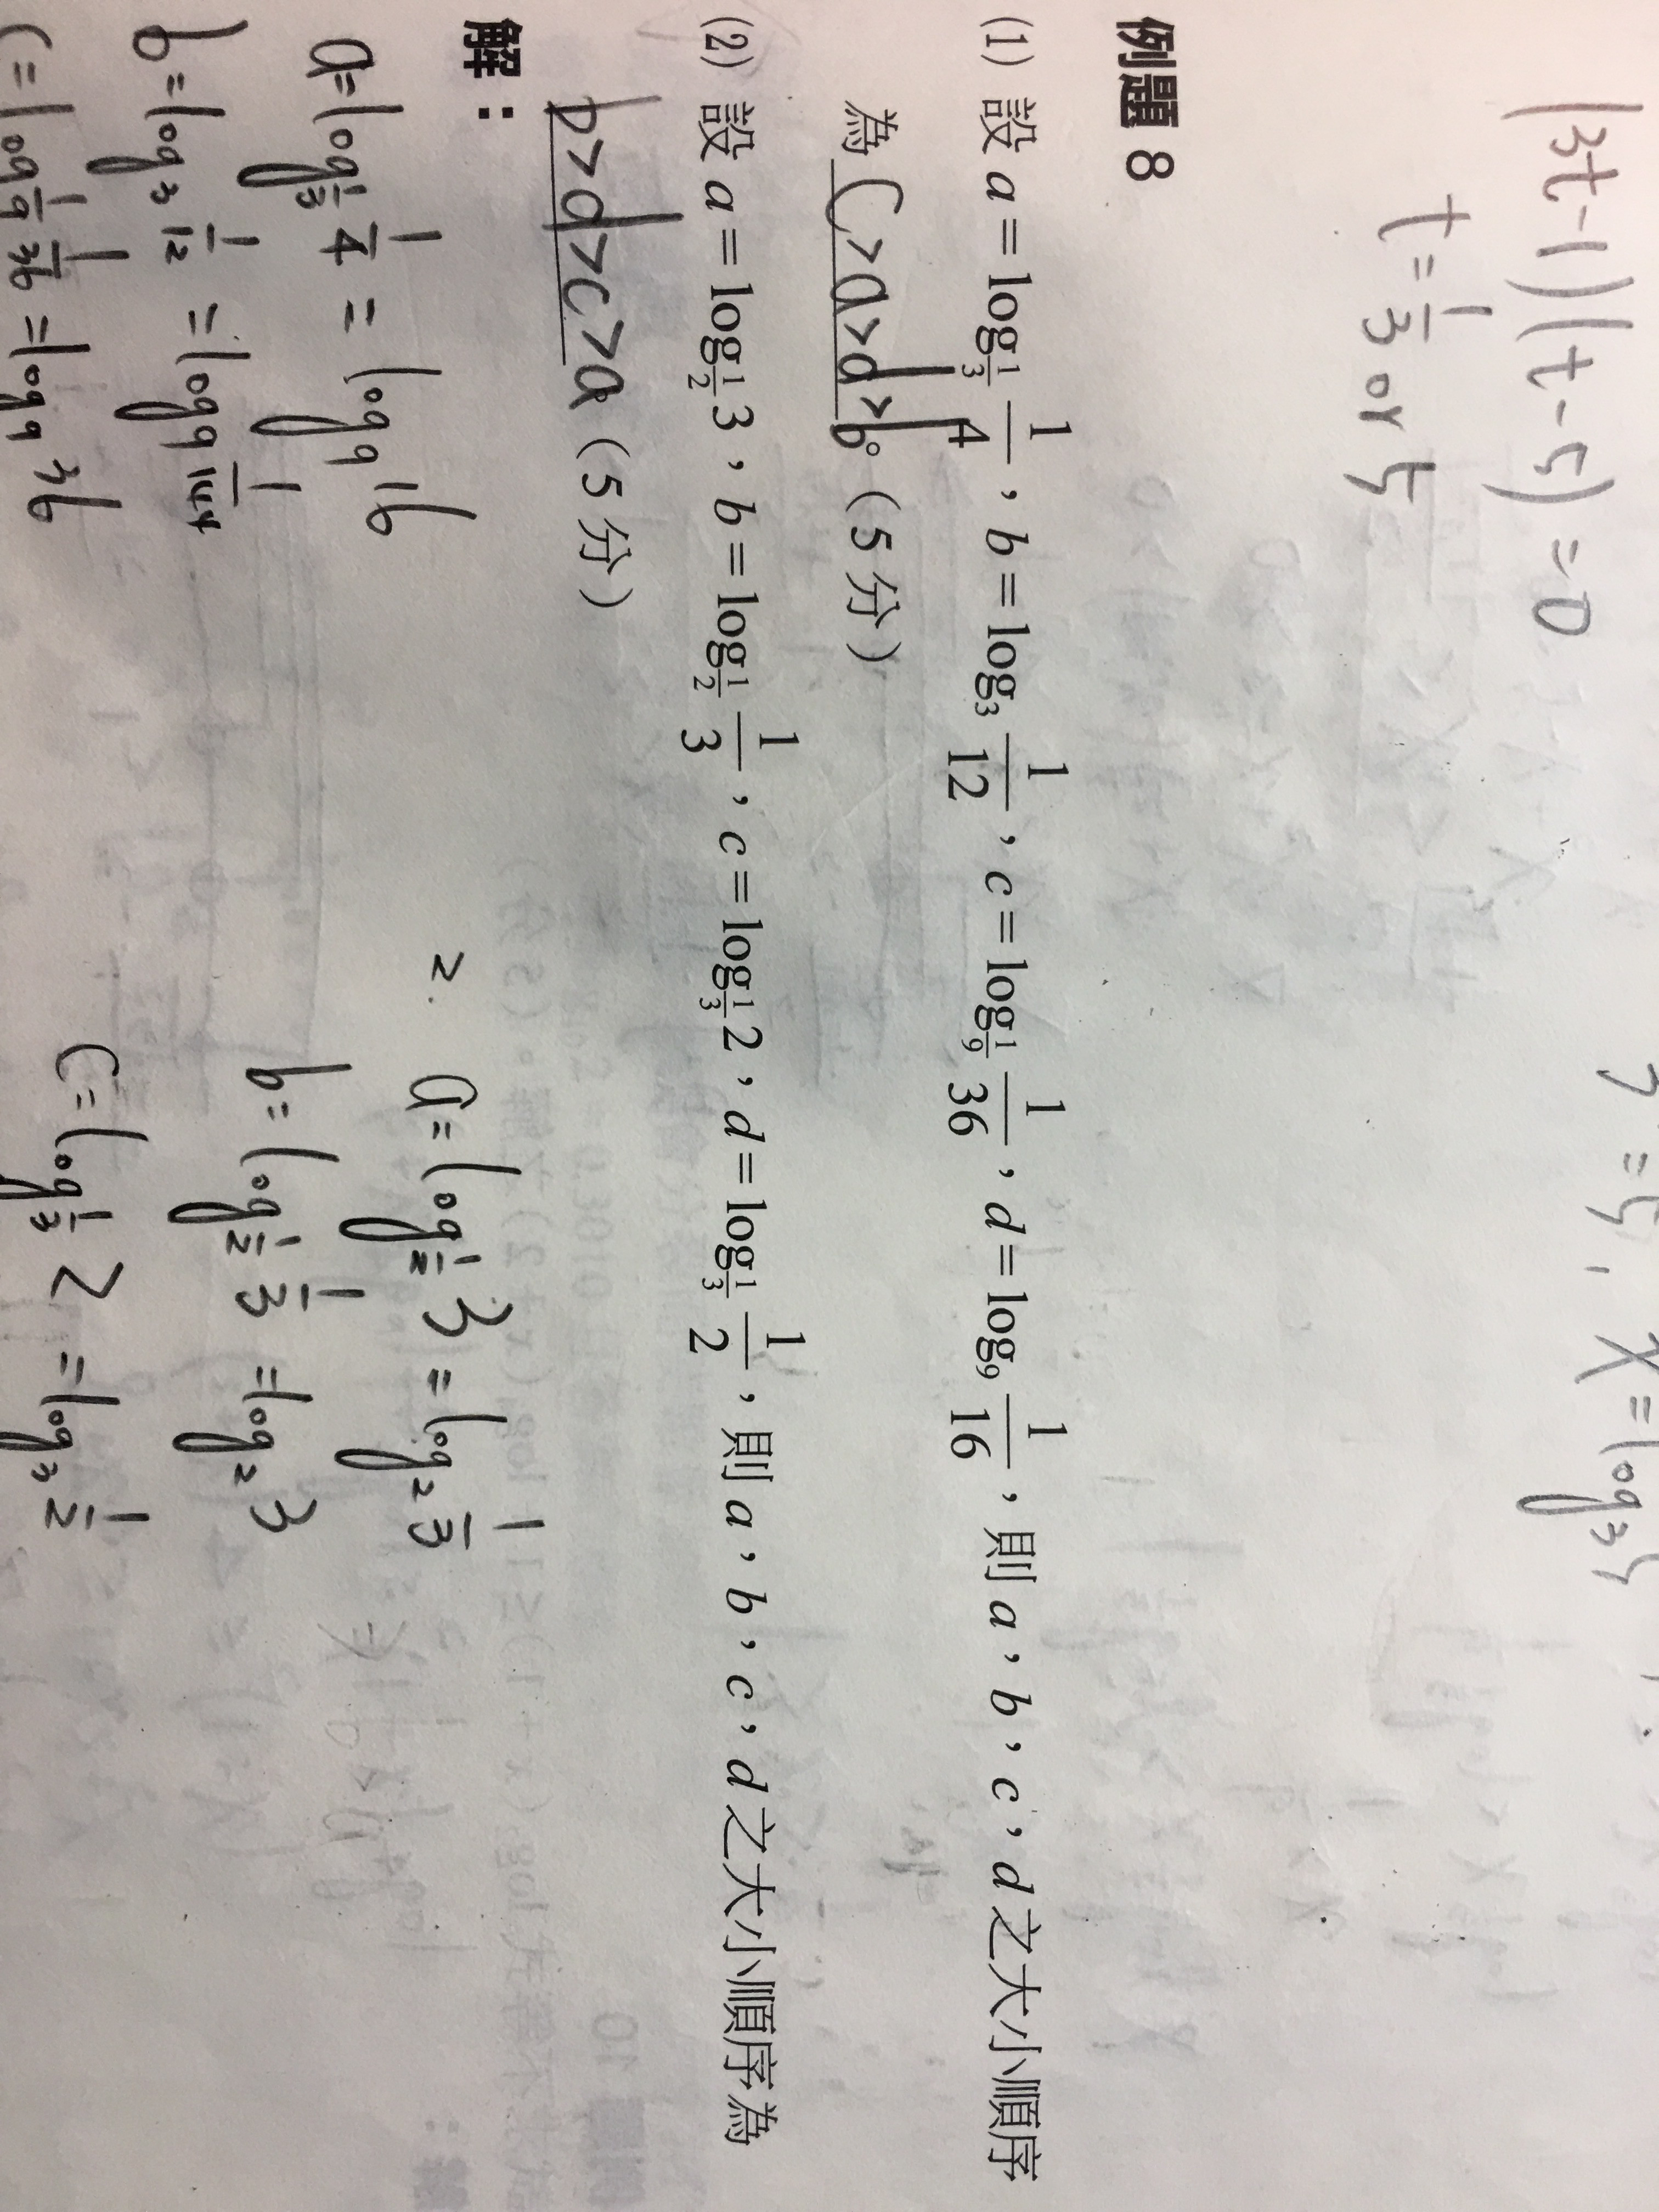 (3t-1)(t-5)=0
t=1/3 or 5
t=5, x=log₃5
例題 8
(1) 設 a=log_{1/3} 1/4，b=log₃ 1/12，c=log_{1/9} 1/36，d=log₉ 1/16，則 a，b，c，d 之大小順序
為 c>a>d>b。（5 分）
(2) 設 a=log_{1/2} 3，b=log_{1/2} 1/3，c=log_{1/3} 2，d=log_{1/3} 1/2，則 a，b，c，d 之大小順序為
b>d>c>a（5 分）
解：
a=log_{1/3} 1/4 = log₉ 16
b=log₃ 1/12 = log₉ 1/144
c=log_{1/9} 1/36 = log₉ 36
2. a=log_{1/2} 3 = log₂ 1/3
b=log_{1/2} 1/3 = log₂ 3
c=log_{1/3} 2 = log₃ 1/2